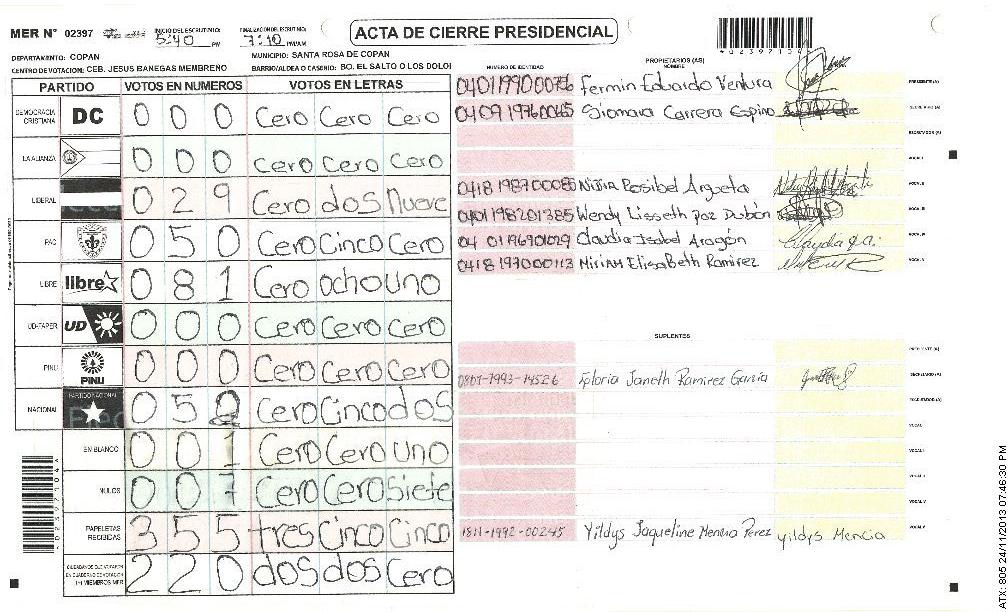 MER N° 02397 INICIO DEL ESCRUTINIO: 5:40 PM FINALIZACION DEL ESCRUTINIO: 7:10 PM/AM
ACTA DE CIERRE PRESIDENCIAL
DEPARTAMENTO: COPAN MUNICIPIO: SANTA ROSA DE COPAN
CENTRO DE VOTACION: CEB. JESUS BANEGAS MEMBREÑO BARRIO/ALDEA O CASERIO: BO. EL SALTO O LOS DOLOI
PARTIDO VOTOS EN NUMEROS VOTOS EN LETRAS
DEMOCRACIA CRISTIANA DC 0 0 0 Cero Cero Cero
LA ALIANZA 0 0 0 Cero Cero Cero
LIBERAL 0 2 9 Cero dos Nueve
PAC 0 5 0 Cero Cinco Cero
LIBRE libre 0 8 1 Cero ocho uno
UD-FAPER UD 0 0 0 Cero Cero Cero
PINU PINU 0 0 0 Cero Cero Cero
NACIONAL PARTIDO NACIONAL 0 5 2 Cero Cinco dos
EN BLANCO 0 0 1 Cero Cero uno
NULOS 0 0 7 Cero Cero Siete
PAPELETAS RECIBIDAS 3 5 5 tres Cinco Cinco
CIUDADANOS QUE VOTARON EN CUADERNO DE VOTACION (+) MIEMBROS MER 2 2 0 dos dos Cero
NUMERO DE IDENTIDAD PROPIETARIOS (AS) NOMBRE
Fermin Eduardo Ventura PRESIDENTE (A)
0409197600065 Siomara Carrera Espino SECRETARIO (A)
ESCRUTADOR (A)
VOCAL I
0418198700085 Rosibel Argueta VOCAL II
0401198201385 Wendy Lisseth Paz Dubón VOCAL III
Claudia Isabel Aragón Claudia VOCAL IV
0418197000113 Miriam Elisabeth Ramirez VOCAL V
SUPLENTES
PRESIDENTE (A)
0801-1993-14526 Gloria Janeth Ramirez Garcia SECRETARIO (A)
ESCRUTADOR (A)
VOCAL I
VOCAL II
VOCAL V
1811-1992-00245 Yildys Jaqueline Mencia Perez yildys Mencia VOCAL V
ATX: 805 24/11/2013 07:46:30 PM